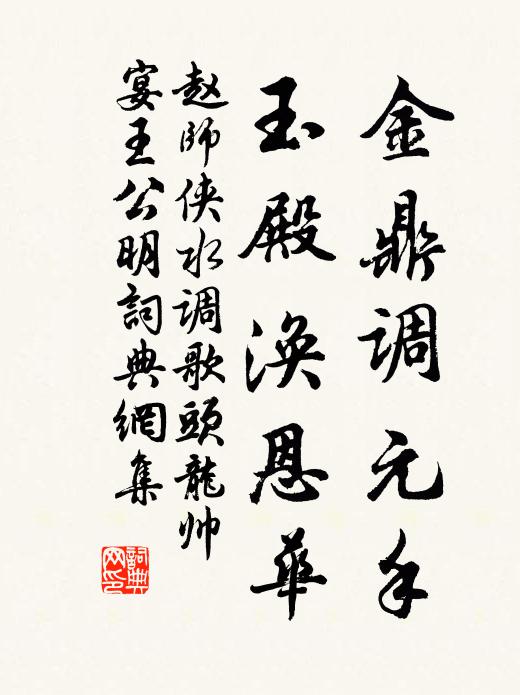 金鼎调元手
玉殿涣恩華
赵師侠水调歌頭龍帅
宴王公明詞典網集
詞典网印